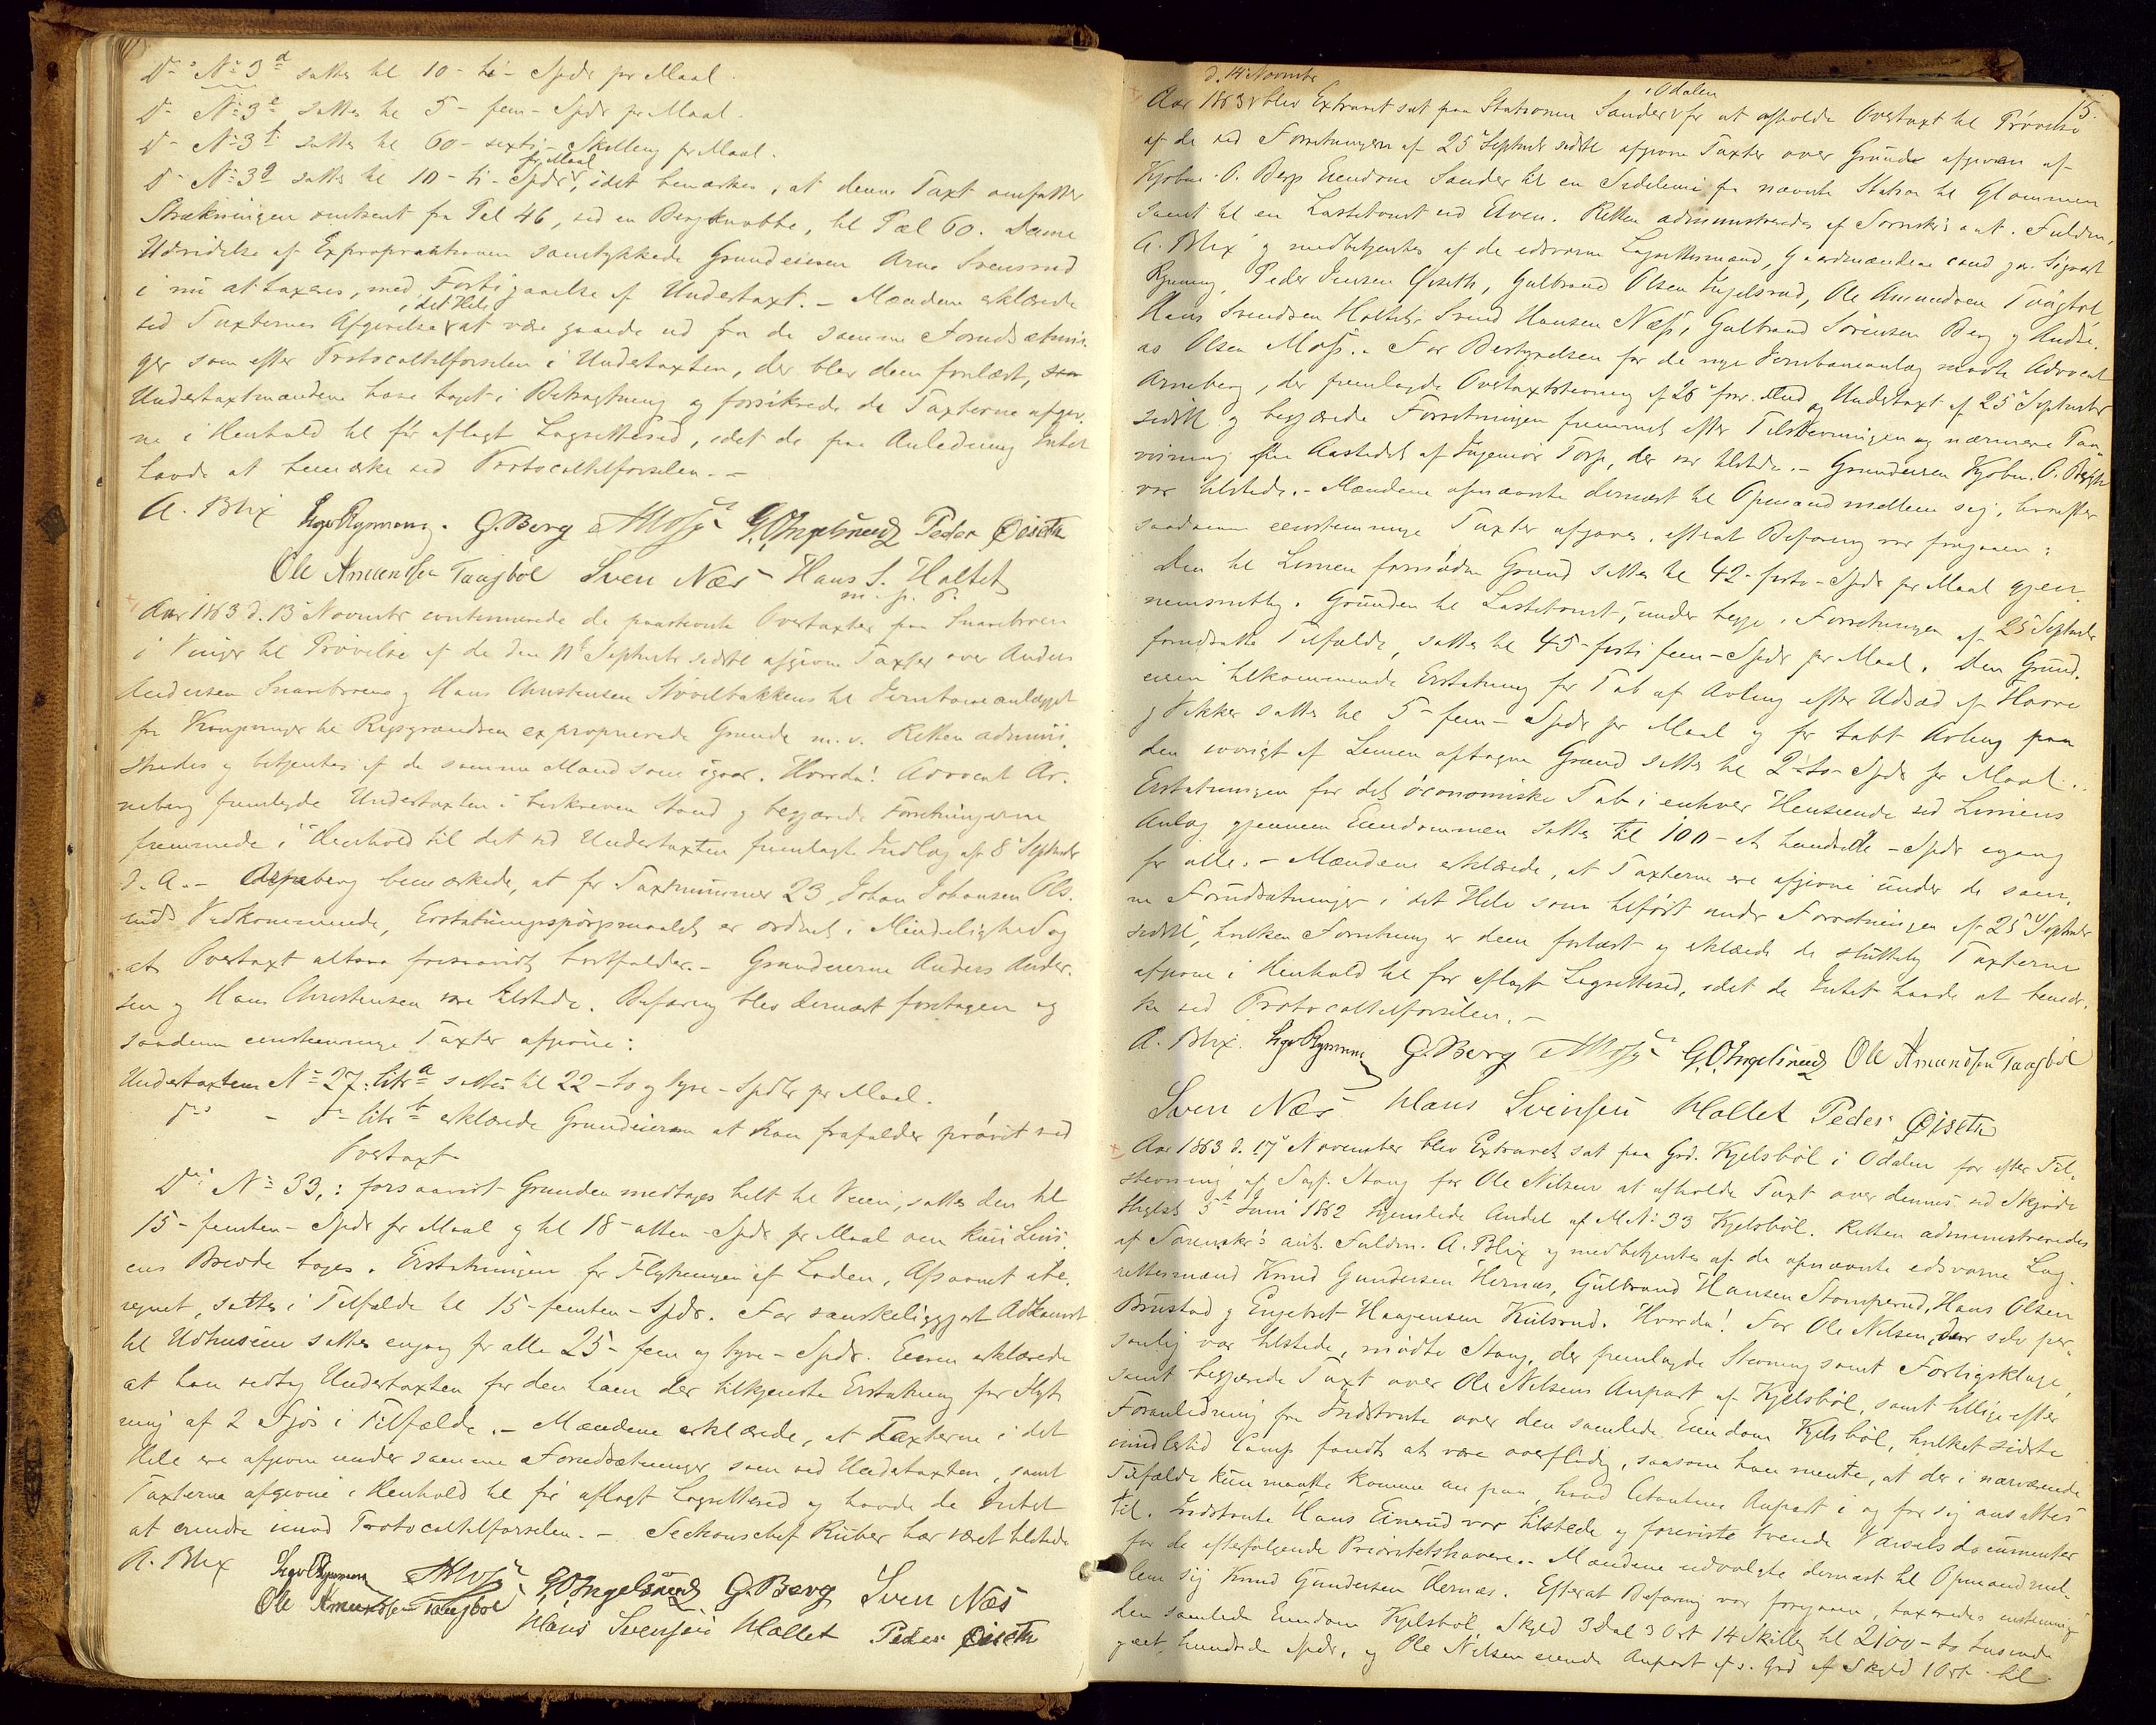 Do No 3d sattes til 10 - ti - Spdr pr Maal.
Do No 3e sattes til 5 - fem - Spdr pr Maal.
Do No 3f sattes til 60 - sexti - Skilling pr Maal.
Do No 3g sattes til 10 - ti - Spdr pr Maal, idet bemærkes, at denne Taxt omfatter
Strækningen omtrent fra Pæl 46, ved en Bergknatte, til Pæl 60. Denne
Udvidelse af Expropriationen samtykkede Grundeieren Arne Svensrud
i nu at taxeres, med Forbigaaelse af Undertaxt. - Mændene erklærede
ved Taxternes Afgivelse i det Hele at være gaaede ud fra de samme Forudsætnin-
ger som efter Protocoltilførselen i Undertaxten, der blev dem forelæst,
Undertaxtmændene have taget i Betragtning og forsikrede de Taxterne afgiv-
ne i Henhold til før aflagt Lagrettesed, idet de paa Anledning Intet
havde at bemærke ved Protocoltilførselen. -
A. Blix Sigv Rynning. G. Berg AMoss G.O.Ingelsrud Peder Øiseth
Ole Amundsen Taagbøl Sven Næs Hans S. Holtet
m. p. P.
Aar 1863 d. 13de Novembr continuerede de paastevnte Overtaxter paa Snareberen
i Vinger til Prøvelse af de den 11te Septembr sidstl afgivne Taxter over Anders
Andersen Snarebroen og Hans Christensen Støvelbakkens til Jernbaneanlægget
fra Kongsvinger til Rigsgrændsen exproprierede Grunde m. v. Retten admini-
stredes og betjentes af de samme Mænd som igaar. Hvorda! Advocat Ar-
neberg fremlagde Undertaxten i beskreven Stand og begjærede Forretningerne
fremmede i Henhold til det ved Undertaxten fremlagte Indlæg af 8de Septembr
d. A. - Arneberg bemærkede, at for Taxtnummer 23, Johan Johansen Ols-
ruds Vedkommende, Erstatningsspørgsmaalet er ordnet i Mindelighed og
at Overtaxt altsaa forsaavidt bortfalder. - Grundeierne Anders Ander-
sen og Hans Christensen vare tilstede. Befaring blev dernæst foretagen og
saadanne eenstemmige Taxter afgivne:
Undertaxtens No 27: litr a sattes til 22 - to og tyve - Spdlr pr Maal.
Do - Do litr b erklærede Grundeieren at han frafalder prøvet ved
Overtaxt
Do No 33: forsaavidt Grunden medtages helt til Veien, sattes den til
15 - femten - Spdr pr Maal og til 18 - atten - Spdr pr Maal om kun Lini-
ens Bredde tages. Erstatningen for Flytningen af Laden, Afsavnet ibe-
regnet, sattes i Tilfælde til 15 - femten - Spdr. For vanskeliggjort Adkomst
til Udhusene sattes engang for alle 25 - fem og tyve - Spdr. Eieren erklærede
at han vedtog Undertaxten for den ham der tilkjendte Erstatning for Flyt-
ning af 2 Fjøs i Tilfælde. - Mændene erklærede, at Taxterne i det
Hele ere afgivne under samme Forudsætninger som ved Undertaxten, samt
Taxterne afgivne i Henhold til før aflagt Lagrettesed og havde de Intet
at erindre imod Protocoltilførselen. - Sectionschef Rüber har været tilstede
A. Blix Sigv Rynning AMoss G.O.Ingelsrud G. Berg Sven Næs
Ole Amundsen Taagbøl Hans Svensen Holtet Peder Øiseth
15.
d. 14 Novembr i Odalen
Aar 1863 blev Extraret sat paa Stationen Sander for at afholde Overtaxt til Prøvelse
af de ved Forretningen af 25de Septembr sidstl afgivne Taxter over Grunde afgiven af
Kjøbm. O. Bergs Eiendom Sander til en Sidelinie fra nævnte Station til Glommen
samt til en Lastetomt ved Elven. Retten administreredes af Sorenskr.s aut. Fuldm.
A. Blix og medbetjentes af de edsvorne Lagrettesmænd, Gaardmændene cand jur. Sigvart
Rynning, Peder Jensen Øiseth, Gulbrand Olsen Ingelsrud, Ole Amundsen Taagbøl,
Hans Svendsen Holtet, Svend Hansen Næss, Gulbrand Sørensen Berg og Andre-
as Olsen Moss. - For Bestyrelsen for de nye Jernbaneanlæg mødte Advocat
Arneberg, der fremlagde Overtaxtstevning af 26de forr. Md og Undertaxt af 25de Septembr
sidstl og begjærede Forretningen fremmet efter Tilstevningen og nærmere Paa-
visning paa Aastedet af Ingeniør Torp, der var tilstede. - Grundeieren Kjøbm. O. Berg
var tilstede. - Mændene opnævnte dernæst til Opmand mellem sig, hvorefter
saadanne eenstemmige Taxter afgaves, efterat Befaring var foregaaen:
Den til Linien fornødne Grund sattes til 42 - firti to - Spdr pr Maal gjen-
nemsnitlig. Grunden til Lastetomt, under begge i Forretningen af 25 Septembr
forudsatte Tilfælde, sattes til 45 - firti fem - Spdr pr Maal. Den Grund-
eieren tilkommende Erstatning for Tab af Avling efter Udsæd af Havre
og Vikker sattes til 5 - fem - Spdr pr Maal og for tabt Avling paa
den øvrigt af Linien optagne Grund sattes til 2 - to - Spdr pr Maal.
Erstatningen for det øconomiske Tab i enhver Henseende ved Liniens
Anlæg gjennem Eiendommen sattes til 100 - et hundrede - Spdr engang
for alle. - Mændene erklærede, at Taxterne ere afgivne under de sam-
me Forudsætninger i det Hele som tilført under Forretningen af 25de Septembr
sidstl, hvilken Forretning er dem forlæst og erklærede de sluttelig Taxterne
afgivne i Henhold til før aflagt Lagrettesed, idet de Intet havde at bemær-
ke ved Protocoltilførselen. -
A. Blix. Sigv Rynning G. Berg AMoss G.O.Ingelsrud Ole Amundsen Taagbøl
Sven Næs Hans Svensen Holtet Peder Øiseth
Aar 1863 d. 17de November blev Extraret sat paa Grd. Kjelsbøl i Odalen for efter Til-
stevning af Sagf. Stang for Ole Nilsen at afholde Taxt over dennes ved Skjøde
thglst 5te Juni 1862 hjemlede Andel af M. No 33 Kjelsbøl. Retten administreredes
af Sorenskr's aut. Fuldm. A. Blix og medbetjentes af de opnævnte edsvorne Lag-
rettesmænd Knud Gundersen Hernæs, Gulbrand Hansen Stomperud, Hans Olsen
Brustad og Engebret Haagensen Kulsrud. Hvorda! For Ole Nilsen, der selv per-
sonlig var tilstede, mødte Stang, der fremlagde Stevning samt Forligsklage,
samt begjærede Taxt over Ole Nilsens Anpart af Kjelsbøl, samt tillige efter
Foranledning fra Indstevnte over den samlede Eiendom Kjelsbøl, hvilket sidste
imidlertid Comp. fandt at være overflødig, saasom han mente, at der i nærværende
Tilfælde kun maatte komme an paa, hvad Citantens Anpart i og for sig ansattes
til. Indstevnte Hans Einerud var tilstede og foreviste tvende Varselsdocumenter
for de efterfølgende Prioritetshavere. - Mændene udvalgte dernæst til Opmand mel-
lem sig Knud Gundersen Hernæs. Efterat Befaring var foregaaen, taxeredes enstemmig
den samlede Eiendom Kjelsbøl, Skyld 3 Dal 3 Ort 14 Skilling til 2100 - to tusinde
og et hundrede Spdr, og Ole Nilsens eiende Anpart af s. Grd af Skyld 1 Ort til